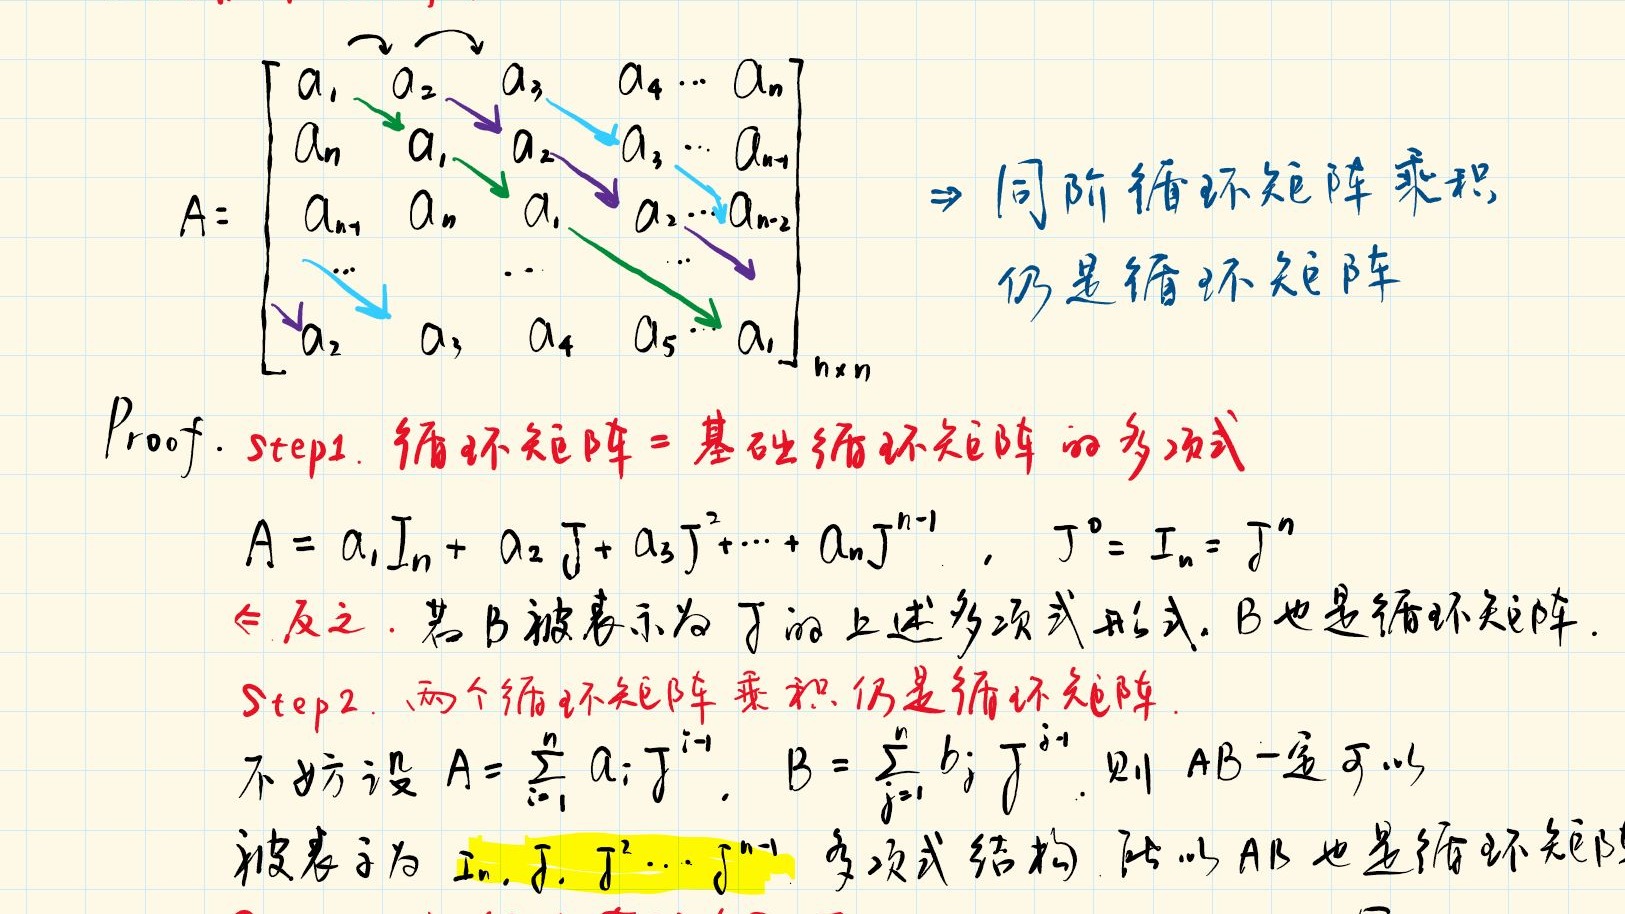 A = [ a₁ a₂ a₃ a₄ ⋯ aₙ
aₙ a₁ a₂ a₃ ⋯ aₙ₋₁
aₙ₋₁ aₙ a₁ a₂ ⋯ aₙ₋₂
⋯ ⋯ ⋯
a₂ a₃ a₄ a₅ ⋯ a₁ ] n×n
⇒ 同阶循环矩阵乘积
仍是循环矩阵
Proof. step1. 循环矩阵 = 基础循环矩阵的多项式
A = a₁Iₙ + a₂J + a₃J² + ⋯ + aₙJⁿ⁻¹ , J⁰ = Iₙ = Jⁿ
⇐ 反之. 若B被表示为J的上述多项式形式. B也是循环矩阵.
Step2. 两个循环矩阵乘积仍是循环矩阵.
不妨设 A = ∑ᵢ₌₁ⁿ aᵢ Jⁱ⁻¹ , B = ∑ⱼ₌₁ⁿ bⱼ Jʲ⁻¹ . 则 AB一定可以
被表示为 Iₙ, J, J² ⋯ Jⁿ⁻¹ 多项式结构. 所以AB也是循环矩阵